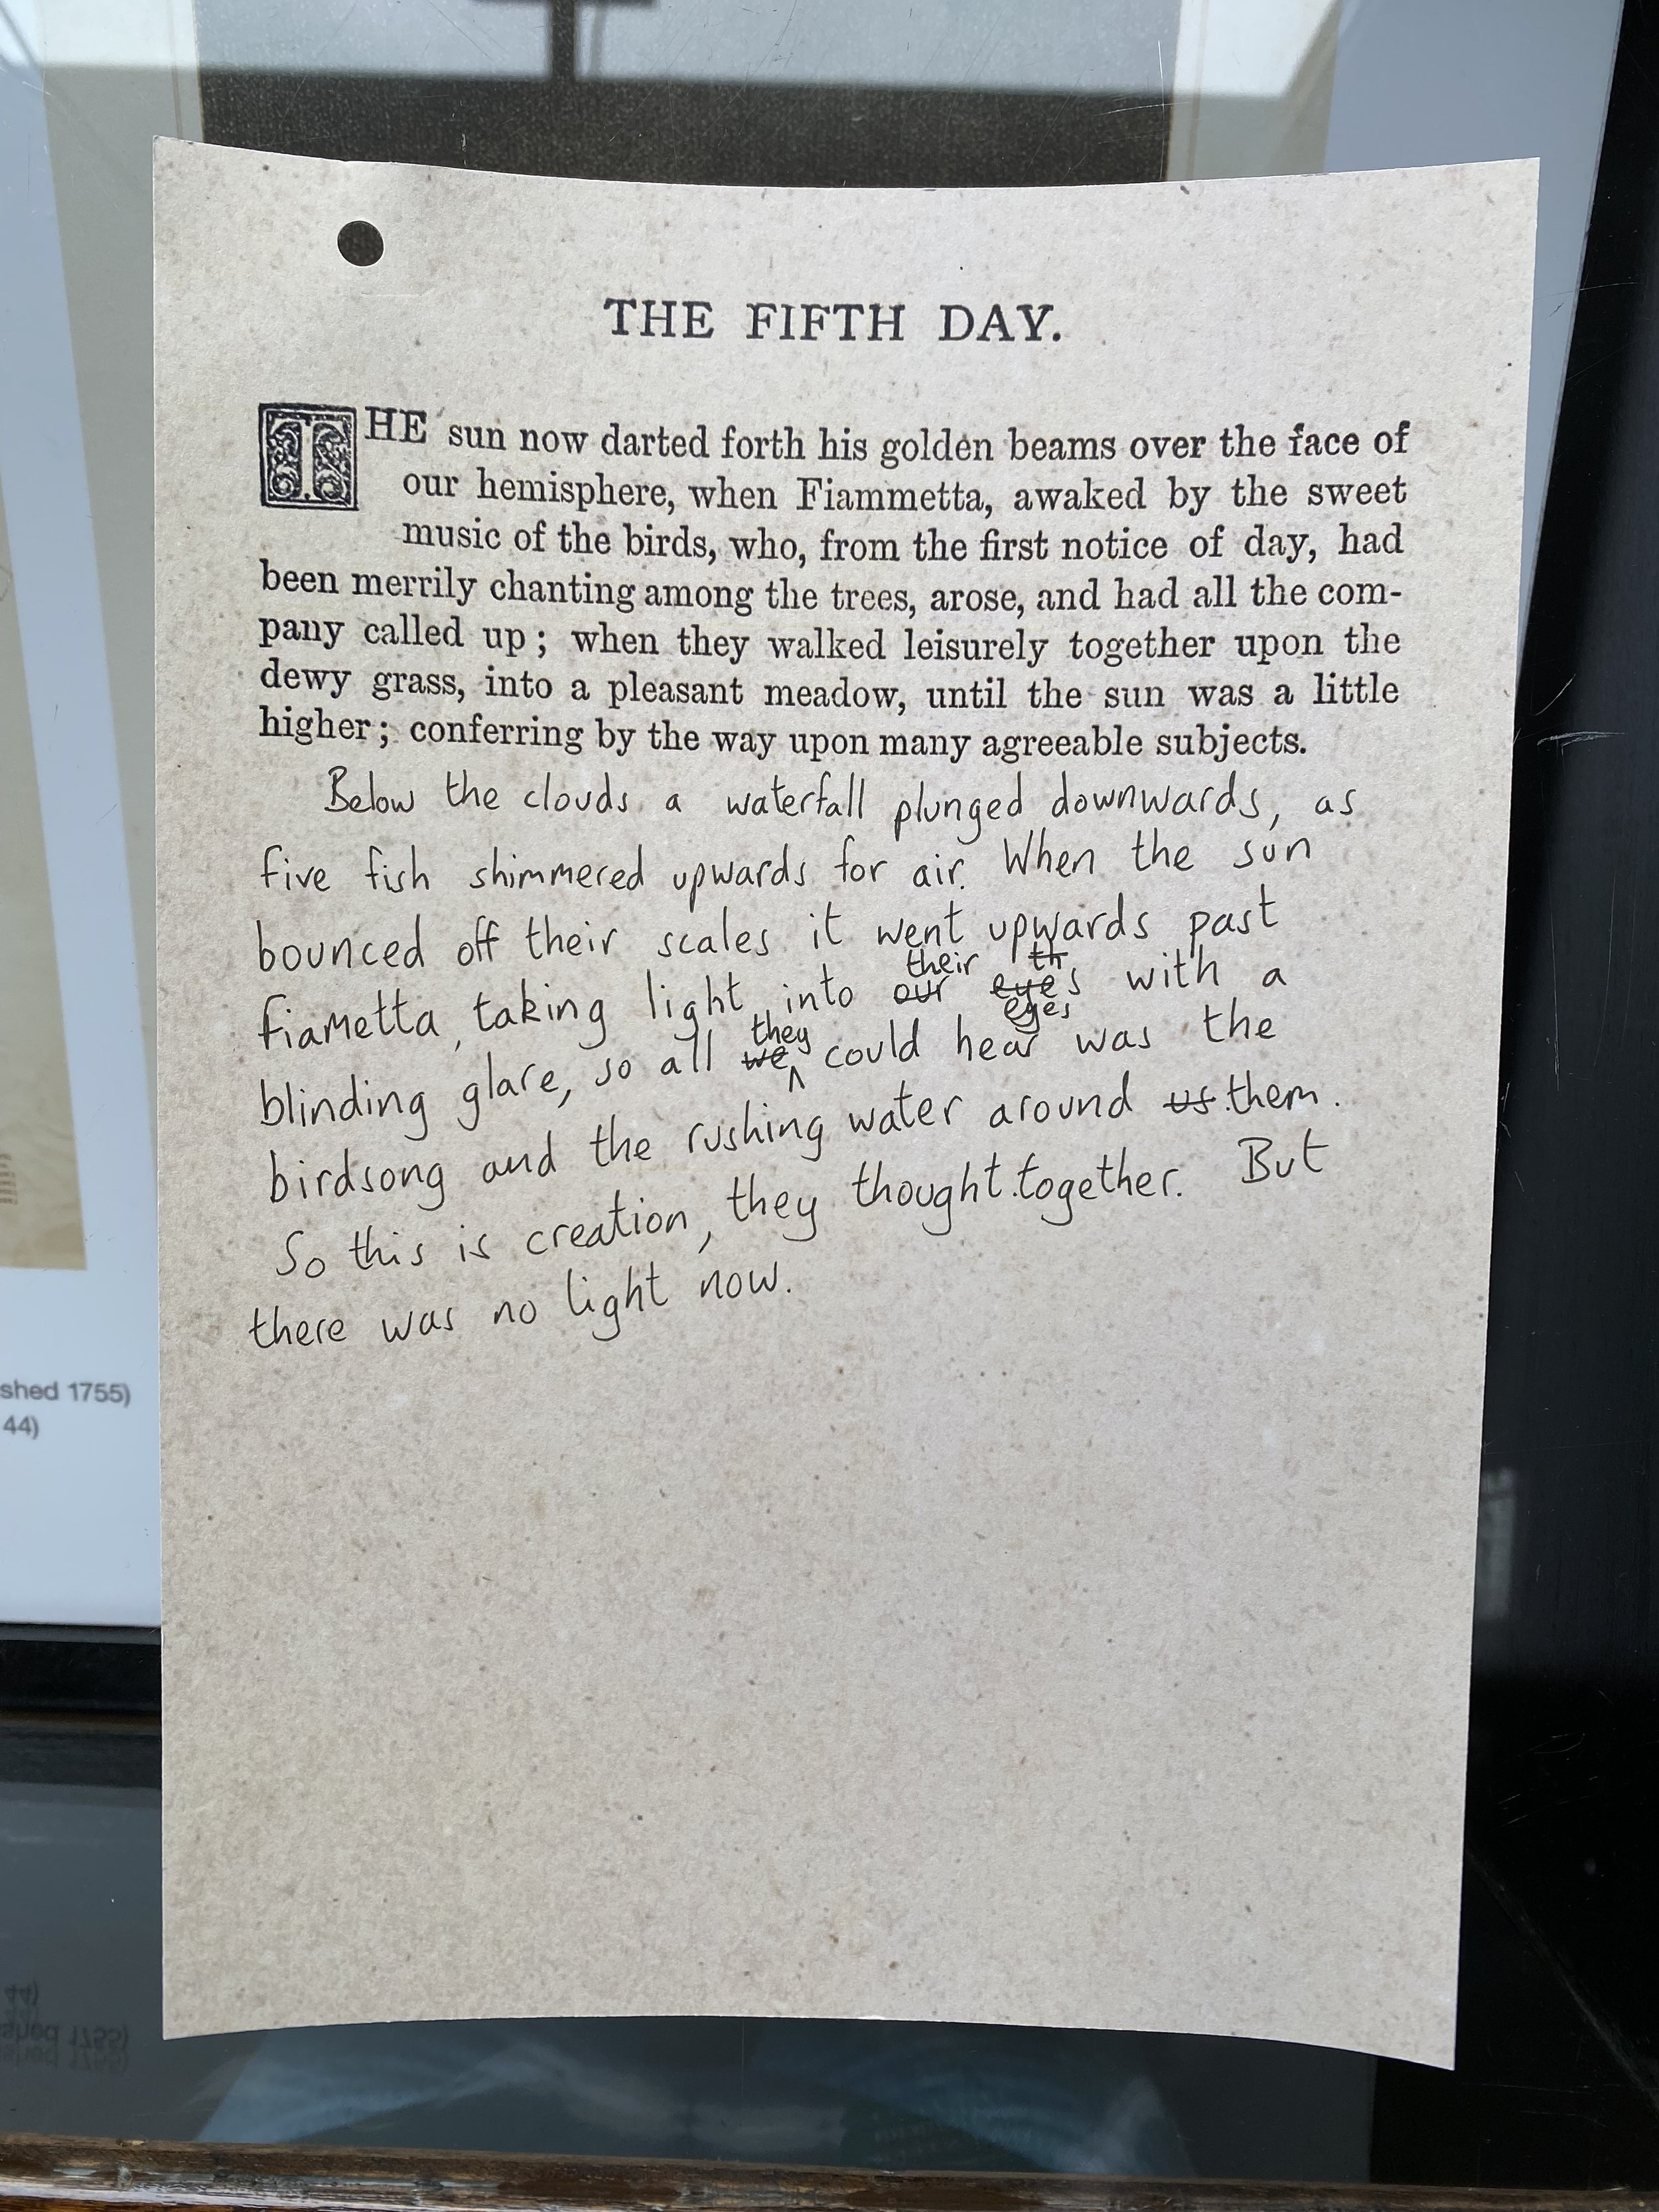 THE FIFTH DAY.
THE sun now darted forth his golden beams over the face of
our hemisphere, when Fiammetta, awaked by the sweet
music of the birds, who, from the first notice of day, had
been merrily chanting among the trees, arose, and had all the com-
pany called up; when they walked leisurely together upon the
dewy grass, into a pleasant meadow, until the sun was a little
higher; conferring by the way upon many agreeable subjects.
Below the clouds a waterfall plunged downwards, as
five fish shimmered upwards for air. When the sun
bounced off their scales it went upwards past
their th
fiametta, taking light into our eyes with a
eyes
they
blinding glare, so all we could hear was the
birdsong and the rushing water around us them.
So this is creation, they thought together. But
there was no light now.
shed 1755)
44)
44)
shed 1755)